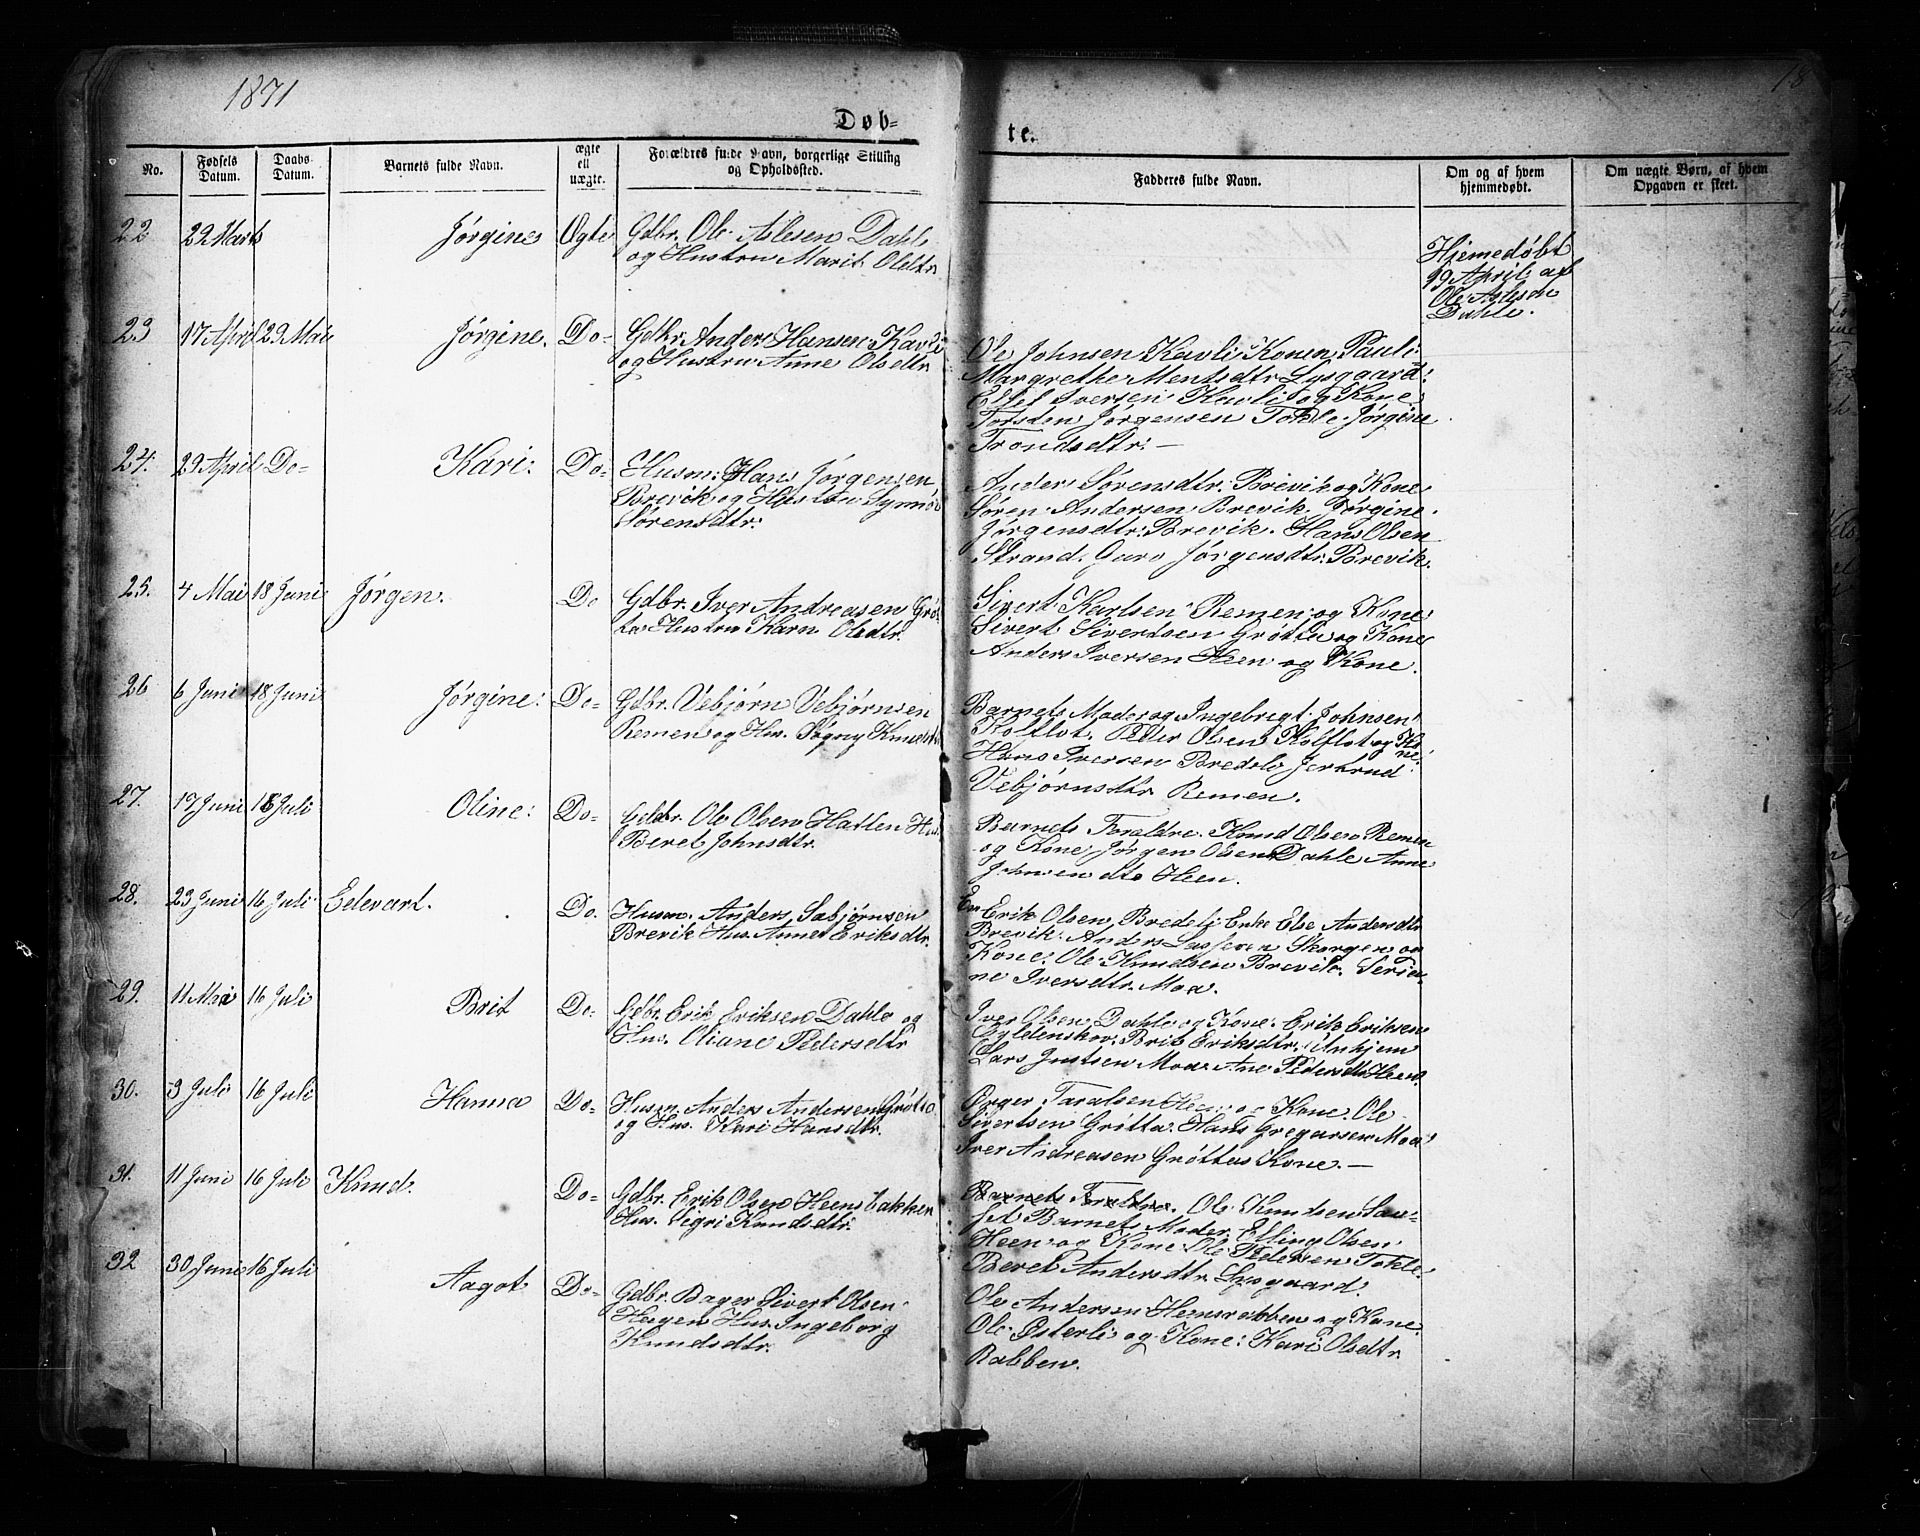 1871
18
Døb-
te.
No.
Fødsels Datum.
Daabs Datum.
Barnets fulde Navn.
ægte ell uægte.
Forældres fulde Navn, borgerlige Stilling og Opholdssted.
Fadderes fulde Navn.
Om og af hvem hjemmedøbt.
Om uægte Børn, af hvem Opgaven er skeet.
22 22 Marts Jørgine Ægte Gdbr. Ole Aslesen Dahle
og Hustru Marit Oldtr.
Hjemedøbt
19 April af
Ole Aslesen
Dahle.
23 17 April 29 Mai Jørgine. Do- Gdbr. Anders Hansen Kavli
og Hustru Anne Olsdtr
Ole Johnsen Kavli Konen Pauli.
Margrethe Mentsdtr. Lysgaard.
Ellef Iversen Kavli og Kone
Torsten Jørgensen Tokle. Jørgine
Trondsdtr. —
24. 29 April Do- Kari: Do- Husm: Hans Jørgensen
Brevik og Hustru Synnøv
Sørensdtr.
Anders Sørensdtr. Brevik og Kone
Søren Andersen Brevik. Jørgine
Jørgensdtr. Brevik. Hans Olsen
Strand. Guro Jørgensdtr. Brevik.
25. 4 Mai 18 Juni Jørgen. Do Gdbr. Iver Andreasen Grøt-
ta Hustru Karn Olsdtr.
Sivert Karlsen Remen og Kone
Sivert Sivertsen Grøtta og Kone
Anders Iversen Heen og Kone.
26 6 Juni 18 Juni Jørgine: Do- Gdbr. Vebjørn Vebjørnsen
Remen og Hus. Sigrig Knudsdtr
Barnets Moder og Ingebrigt Johnsen
Kolflot. Peder Olsen Kolflot og Ko-
ne.
Hans Iversen Bredeli Jertrud
Vebjørnsdtr Remen.
27. 17 Juni 18 Juli Oline: Do- Gdbr. Ole Olsen Hatlen Hus
Beret Johnsdtr.
Barnets Foraldre. Knud Olsen Remen
og Kone Jørgen Olsen Dahle Anne
Johnsen dtr Heen.
28. 23 Juni 16 Juli Edevart. Do. Husm. Anders Sabjørnsen
Brevik Hus. Anne Eriksdtr.
Erik Olsen Bredeli Enke Else Andersdtr
Brevik. Anders Lassesen Skorgen og
Kone. Ole Knudsen Brevik. Seria-
ne Iversdtr. Moa.
29. 11 Mai 16 Juli Brit Do- Gdbr. Erik Eriksen Dahle og
Hus. Oliane Pedersdtr
Iver Olsen Dahle og Kone. Erik Eriksen
Gyldenskov. Brit Eriksdtr. Unhjem
Lars Justsen Moa. Ane Pedersdtr Heen.
30. 3 Juli 16 Juli Hanna Do- Husm. Anders Andersen Grøtta
og Hus. Kari Hansdtr.
Birger Taralsen Heen og Kone. Ole
Sivertsen Grøtta. Hans Gregarsen Moa
Iver Andreasen Grøttas Kone. —
31. 11 Juni 16 Juli Knud. Do- Gdbr. Erik Olsen Heensbakken
Hus. Sigri Knudsdtr.
Barnets Foraldre. Ole Knudsen Sau-
set Barnets Moder. Elling Olsen
Heen og Kone. Ole Pedersen Tokle.
Beret Andersdtr Lysgaard.
32 30 Juni 16 Juli Aagot Do- Gdbr. Bager Sivert Olsen
Hagen Hus. Ingeborg
Knudsdtr.
Ole Andersen Heensrabben og Kone.
Ole Østerli og Kone: Kari Olsdtr
Rabben.